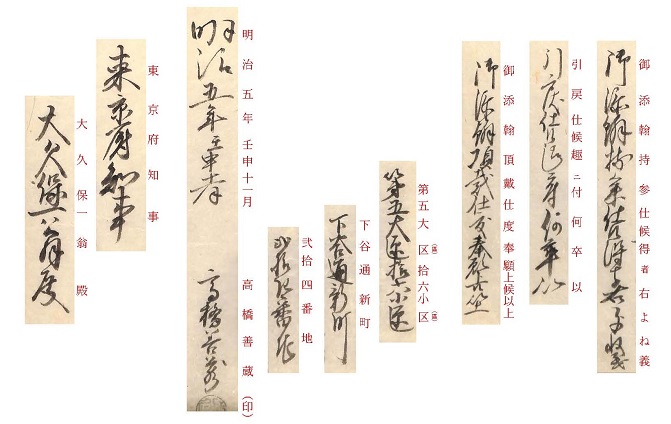 御添翰持参仕候得者右よね義
引戻仕候趣ニ付何卒以
御添翰頂戴仕度奉願上候以上
第五大区(區)拾六小区(區)
下谷通新町
弐拾四番地
明治五年壬申十一月 高橋善蔵(印)
東京府知事
大久保一翁殿